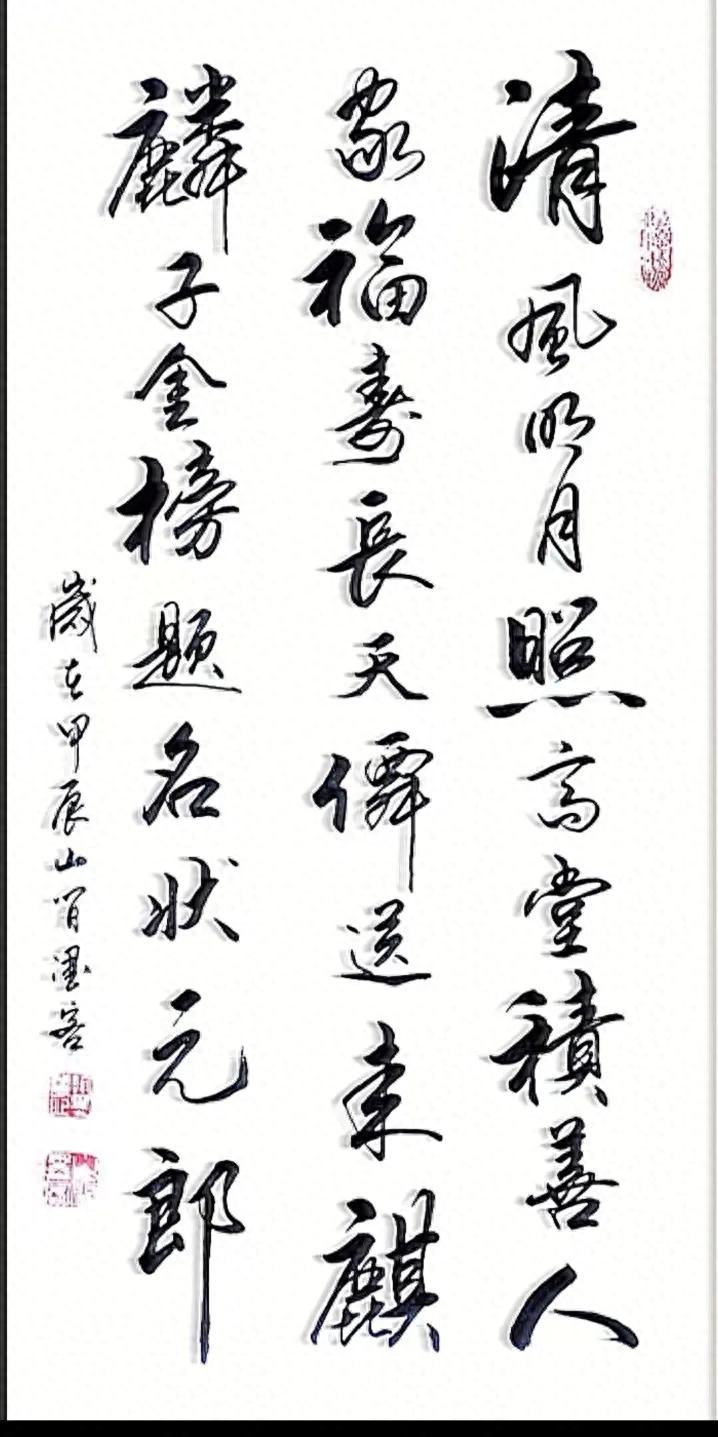 清風明月照高堂積善人
家福壽長天僊送来麒
麟子金榜題名状元郎
歲在甲辰山月墨客